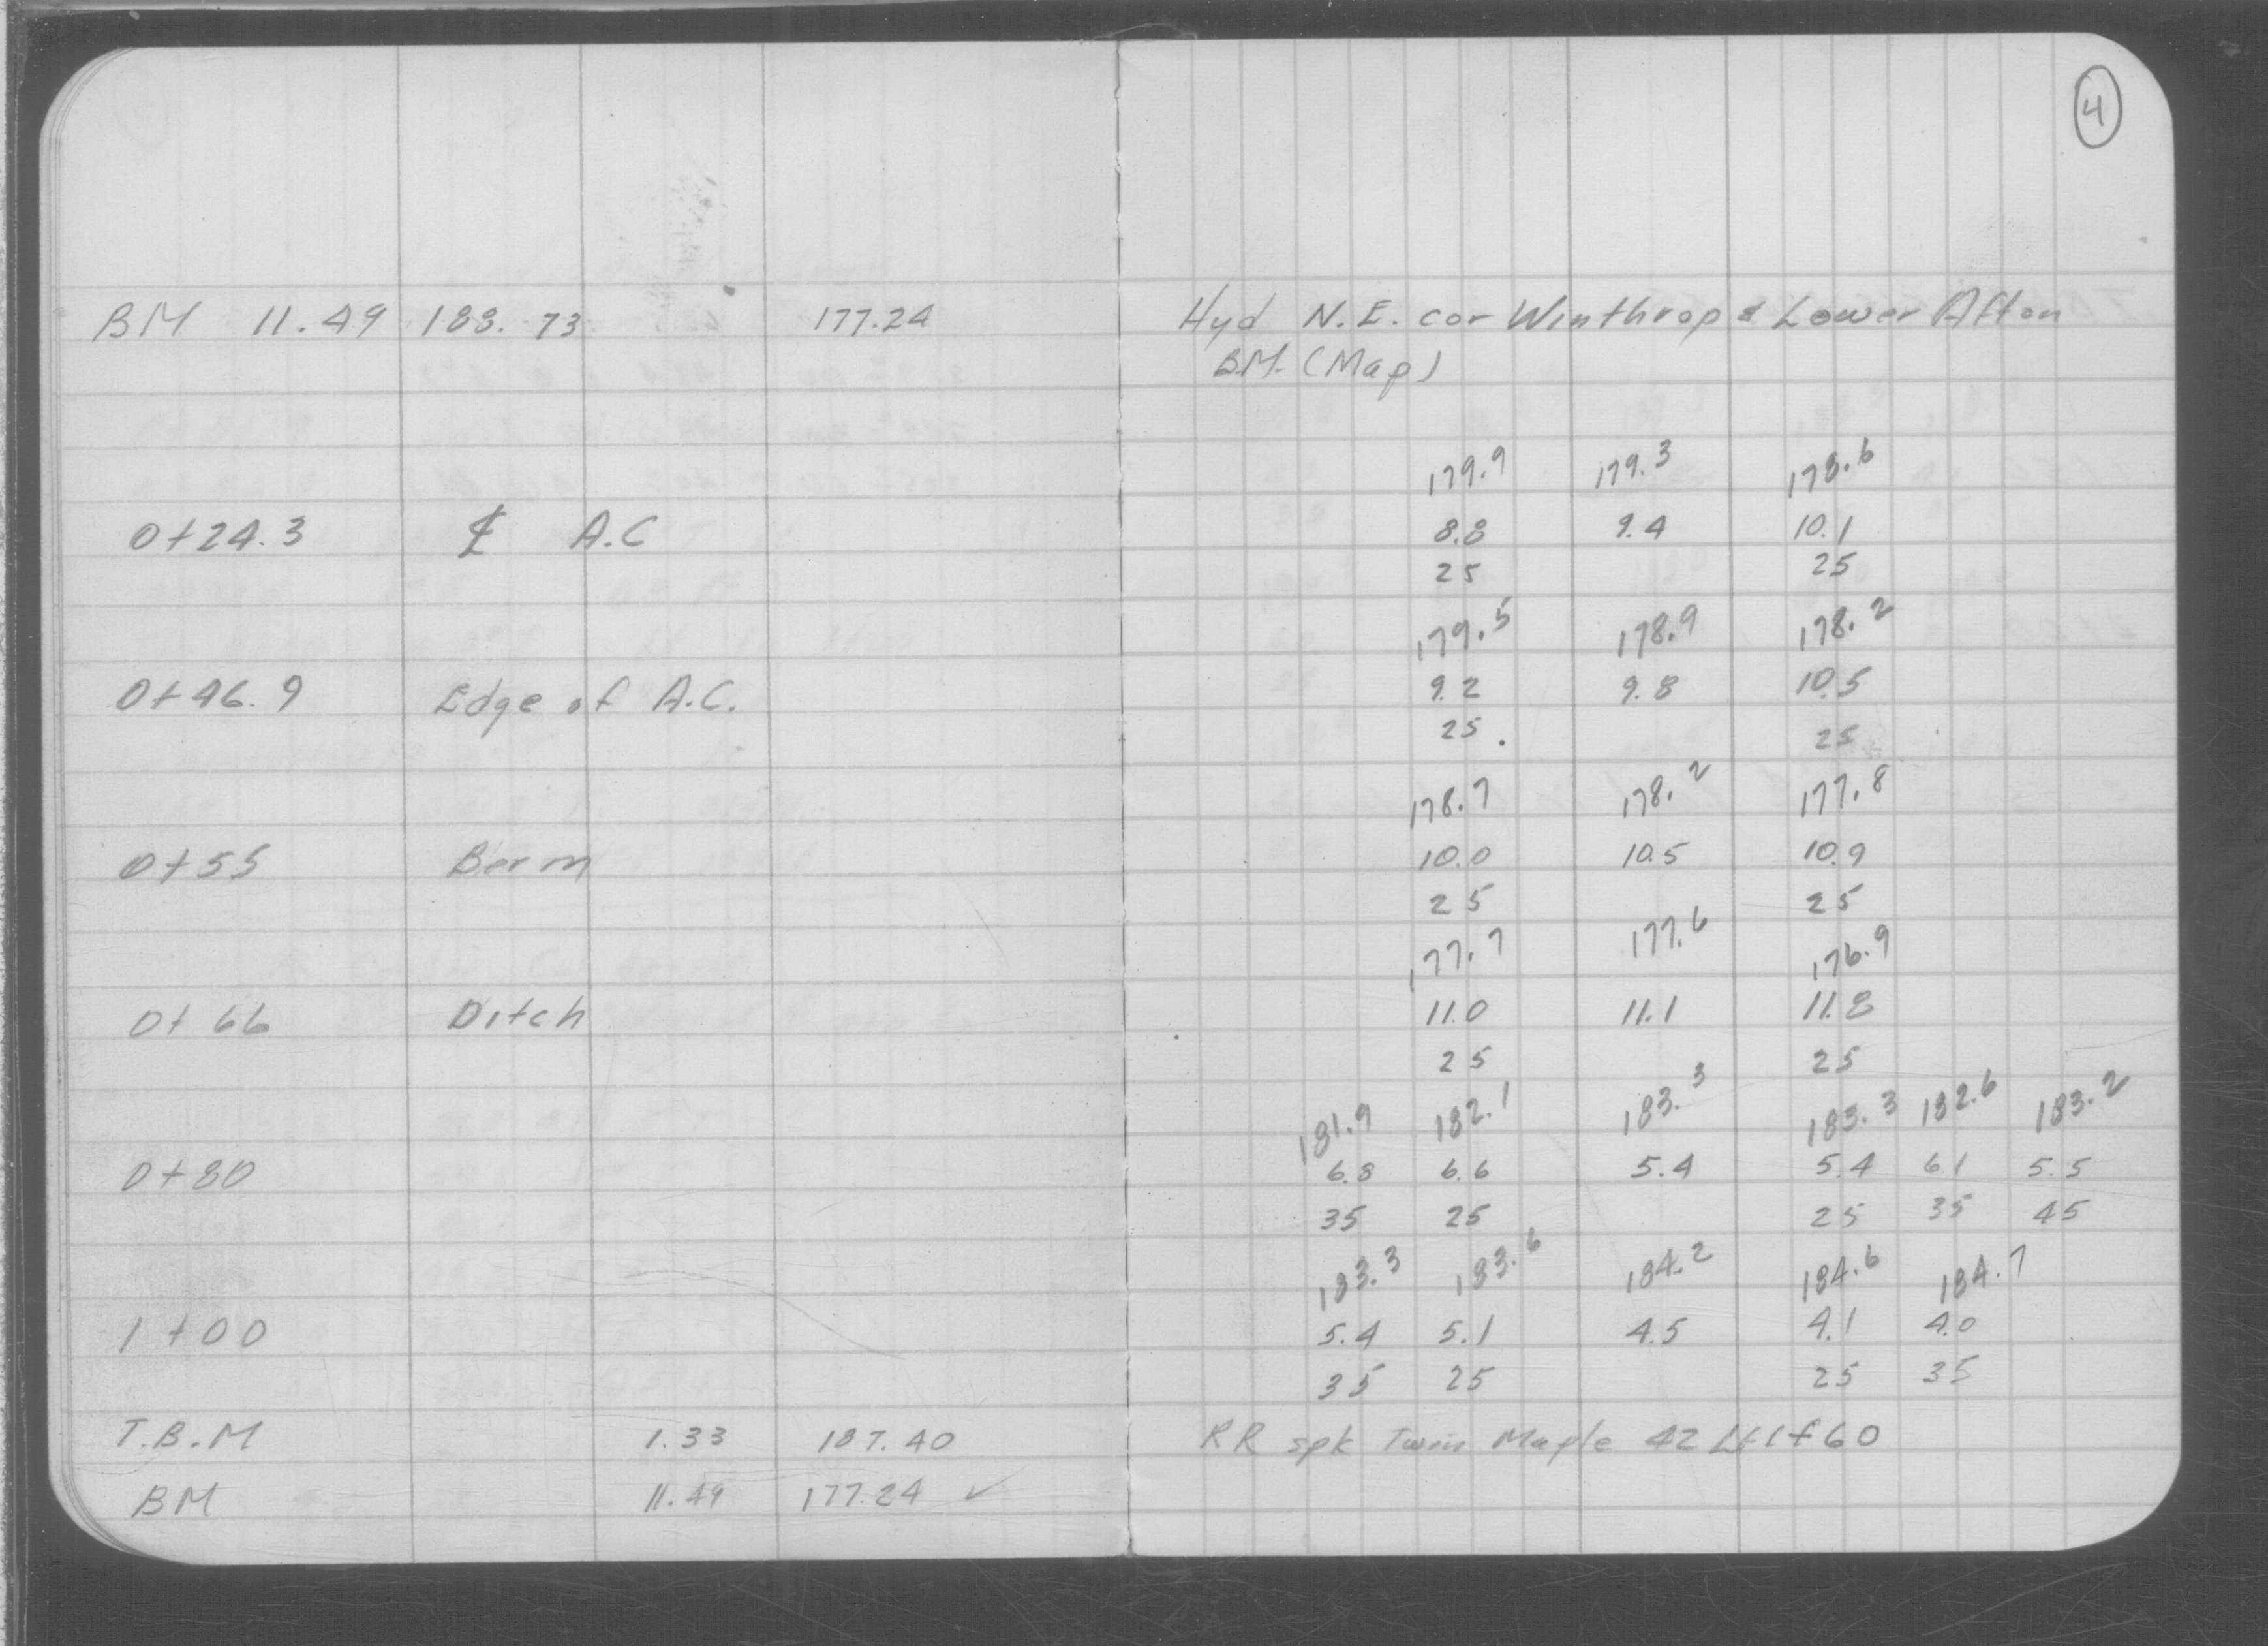 4
BM 11.49 188.73 177.24 Hyd N.E. cor Winthrop & Lower Afton
B.M. (Map)
179.9 179.3 178.6
0+24.3 ℄ A.C 8.8 9.4 10.1
25 25
179.5 178.9 178.2
0+46.9 Edge of A.C. 9.2 9.8 10.5
25 25
178.7 178.2 177.8
0+55 Berm 10.0 10.5 10.9
25 25
177.7 177.6 176.9
0+66 Ditch 11.0 11.1 11.8
25 25
181.9 182.1 183.3 183.3 182.6 183.2
0+80 6.8 6.6 5.4 5.4 6.1 5.5
35 25 25 35 45
183.3 183.6 184.2 184.6 184.7
1+00 5.4 5.1 4.5 4.1 4.0
35 25 25 35
T.B.M 1.33 187.40 RR spk Twin Maple 42 Lt 1+60
BM 11.49 177.24 ✓